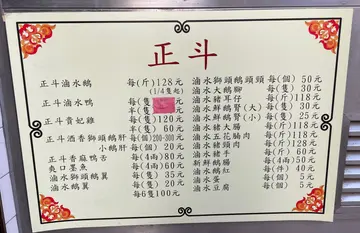 正斗
正斗滷水鵝 每(斤)128元
(1/4隻起)
正斗滷水鴨 每(隻) 元
半(隻) 元
正斗貴妃雞 每(隻)120元
半(隻) 60元
正斗酒香獅頭鵝肝 每(個)200-300元
小鵝肝 每(個) 20元
正斗香麻鴨舌 每(4兩)80元
爽口墨魚 每(4兩)60元
滷水獅頭鵝翼 每(隻) 35元
滷水鵝翼 每(隻) 20元
每6隻100元
滷水獅頭鵝頭頸 每(個) 50元
滷水大鵝腳 每(隻) 30元
滷水豬耳仔 每(斤)118元
滷水鮮鵝腎(大) 每(隻) 30元
滷水鮮鵝腎(小) 每(隻) 25元
滷水豬大腸 每(斤)118元
滷水五花腩肉 每(斤)118元
滷水豬頸肉 每(斤)118元
滷水豬手 每(斤)
新鮮鵝腸
滷水鵝紅 每(件) 40元
滷水蛋 每(個) 5元
滷水豆腐 每(件) 5元